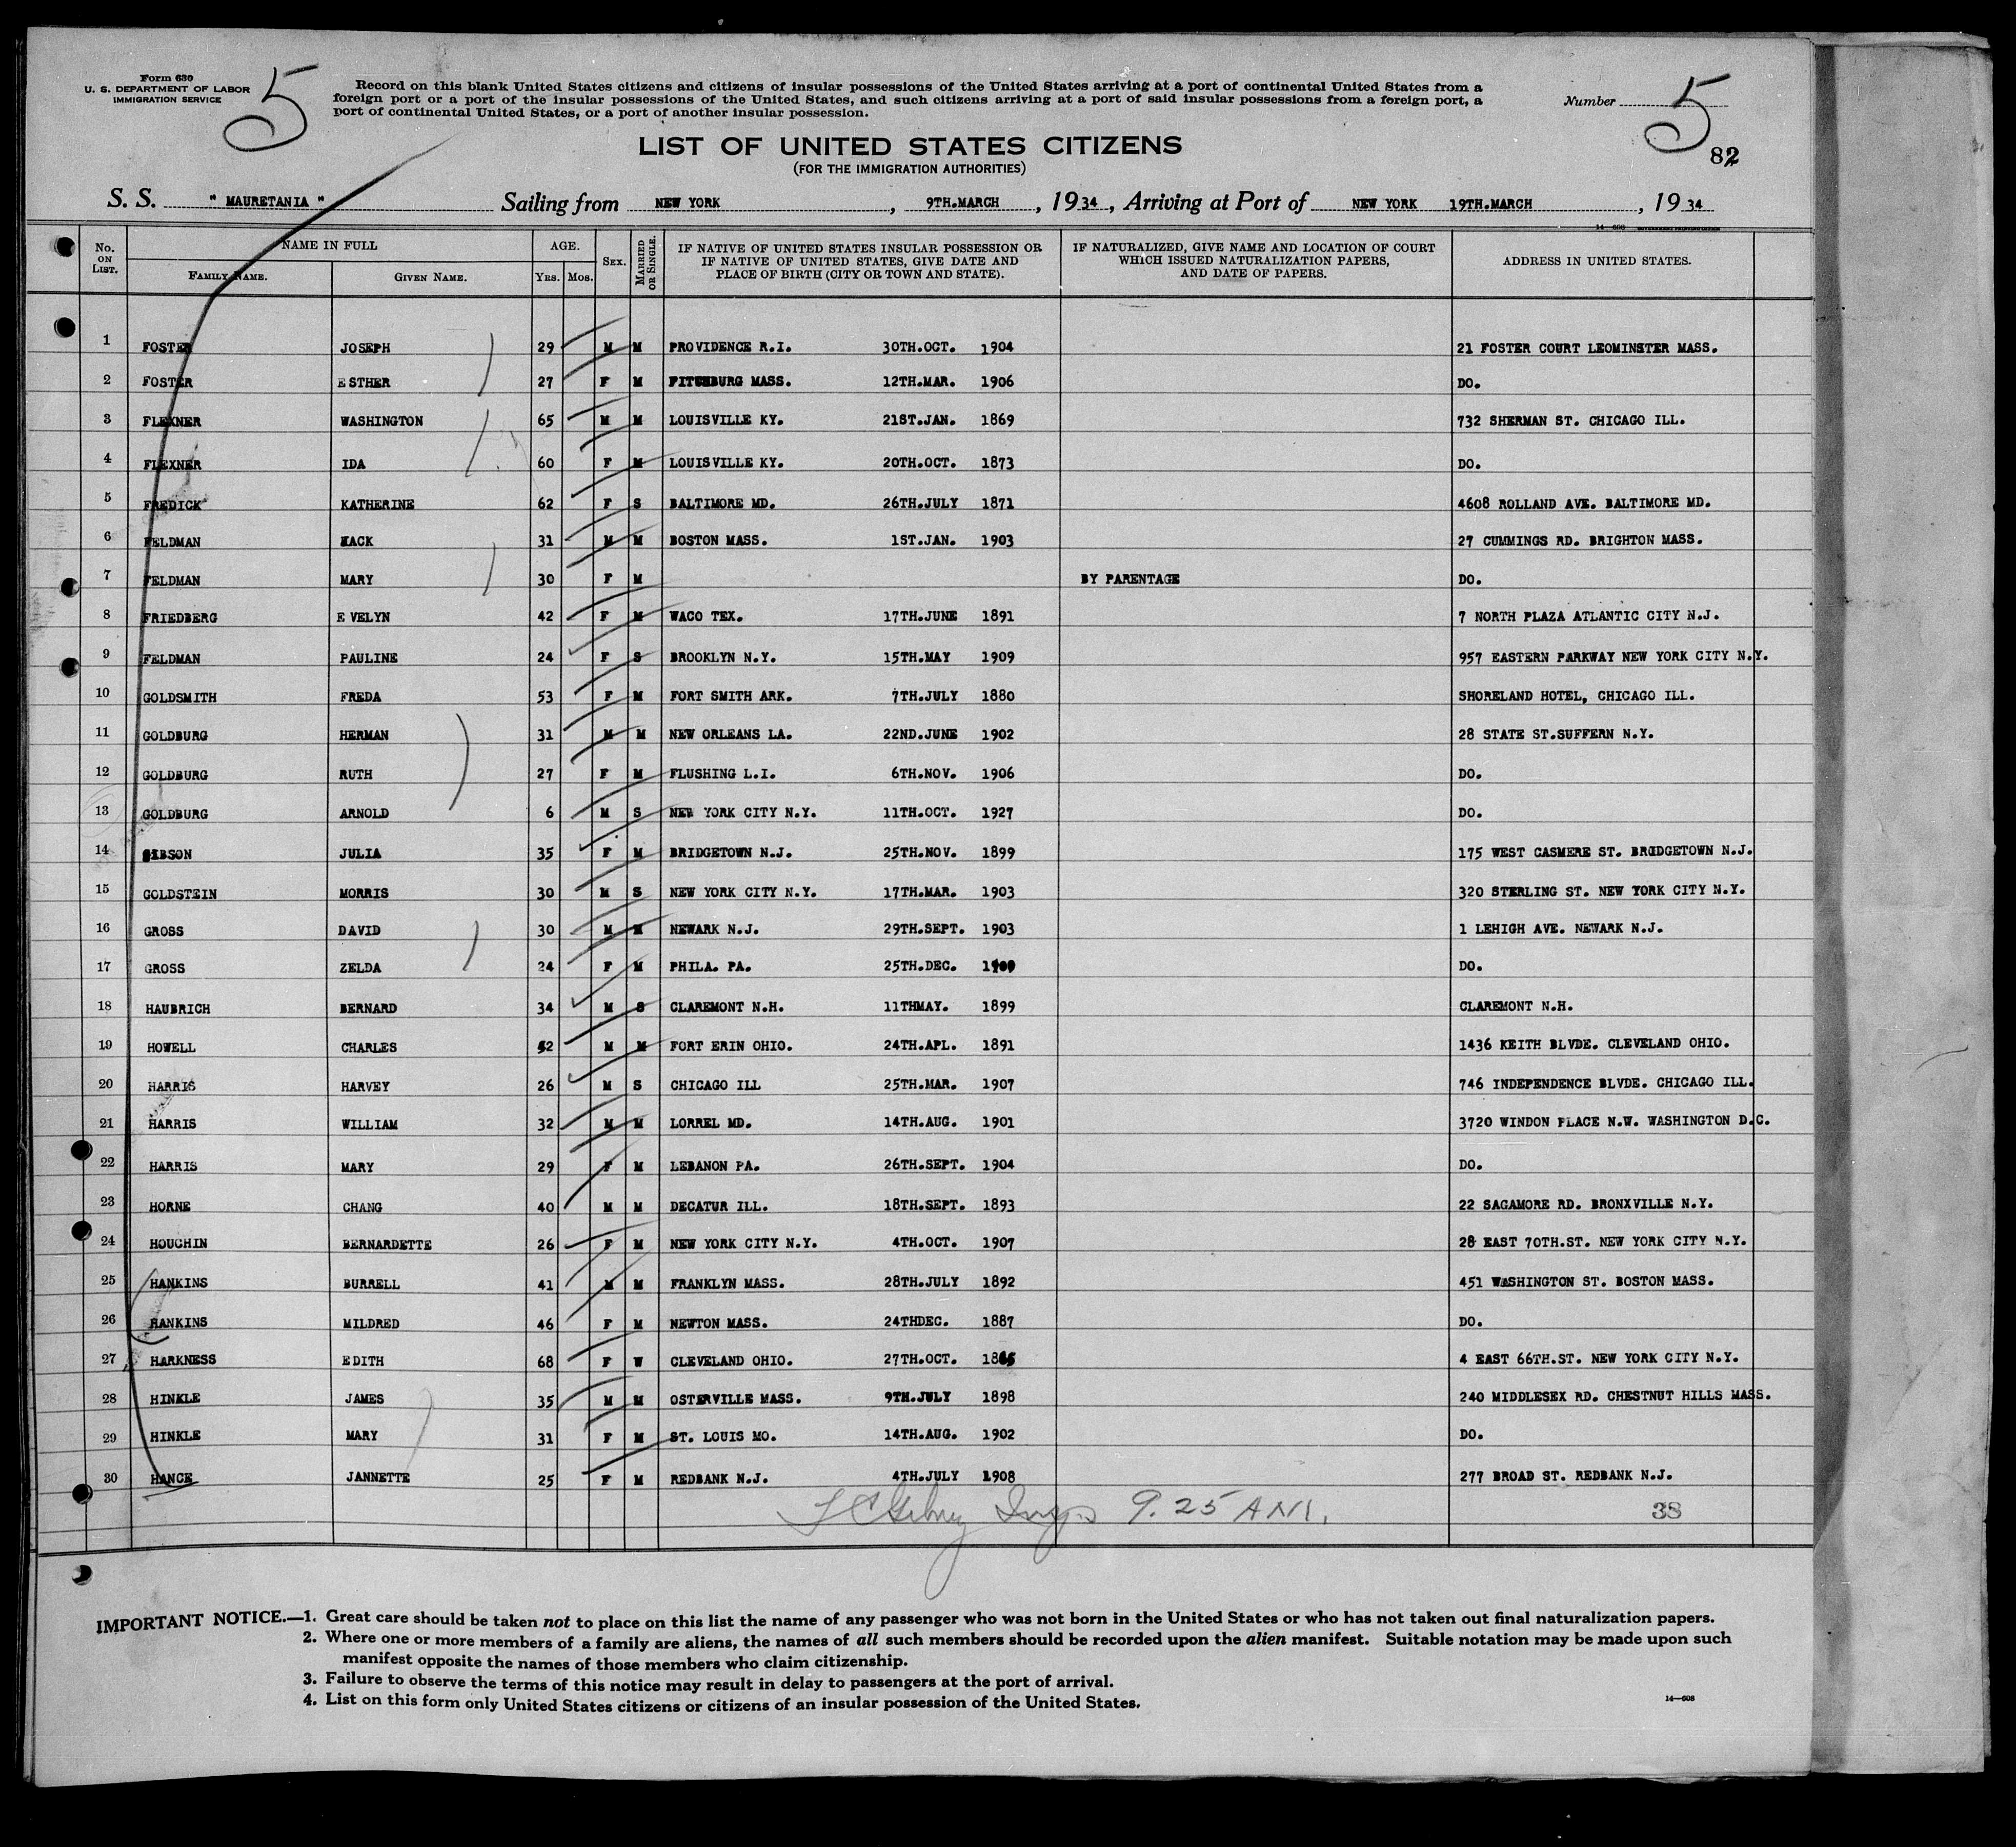 Form 630
U. S. DEPARTMENT OF LABOR
IMMIGRATION SERVICE
5
Record on this blank United States citizens and citizens of insular possessions of the United States arriving at a port of continental United States from a
foreign port or a port of the insular possessions of the United States, and such citizens arriving at a port of said insular possessions from a foreign port, a
port of continental United States, or a port of another insular possession.
Number 5
82
LIST OF UNITED STATES CITIZENS
(FOR THE IMMIGRATION AUTHORITIES)
S. S. " MAURETANIA " Sailing from NEW YORK , 9TH.MARCH , 1934 , Arriving at Port of NEW YORK 19TH.MARCH , 1934
No. ON LIST. NAME IN FULL FAMILY NAME. GIVEN NAME. AGE. YRS. MOS. SEX. MARRIED OR SINGLE. IF NATIVE OF UNITED STATES INSULAR POSSESSION OR IF NATIVE OF UNITED STATES, GIVE DATE AND PLACE OF BIRTH (CITY OR TOWN AND STATE). IF NATURALIZED, GIVE NAME AND LOCATION OF COURT WHICH ISSUED NATURALIZATION PAPERS, AND DATE OF PAPERS. ADDRESS IN UNITED STATES.
1 FOSTER JOSEPH 29 M M PROVIDENCE R.I. 30TH.OCT. 1904 21 FOSTER COURT LEOMINSTER MASS.
2 FOSTER ESTHER 27 F M FITCHBURG MASS. 12TH.MAR. 1906 DO.
3 FLEXNER WASHINGTON 65 M M LOUISVILLE KY. 21ST.JAN. 1869 732 SHERMAN ST. CHICAGO ILL.
4 FLEXNER IDA 60 F M LOUISVILLE KY. 20TH.OCT. 1873 DO.
5 FREDICK KATHERINE 62 F S BALTIMORE MD. 26TH.JULY 1871 4608 ROLLAND AVE. BALTIMORE MD.
6 FELDMAN 31 M M BOSTON MASS. 1ST.JAN. 1903 27 CUMMINGS RD. BRIGHTON MASS.
7 FELDMAN MARY 30 F M BY PARENTAGE DO.
8 FRIEDBERG EVELYN 42 F M WACO TEX. 17TH.JUNE 1891 7 NORTH PLAZA ATLANTIC CITY N.J.
9 FELDMAN PAULINE 24 F S BROOKLYN N.Y. 15TH.MAY 1909 957 EASTERN PARKWAY NEW YORK CITY N.Y.
10 GOLDSMITH FREDA 53 F M FORT SMITH ARK. 7TH.JULY 1880 SHORELAND HOTEL, CHICAGO ILL.
11 GOLDBURG HERMAN 31 M M NEW ORLEANS LA. 22ND.JUNE 1902 28 STATE ST.SUFFERN N.Y.
12 GOLDBURG RUTH 27 F M FLUSHING L.I. 6TH.NOV. 1906 DO.
13 GOLDBURG ARNOLD 6 M S NEW YORK CITY N.Y. 11TH.OCT. 1927 DO.
14 GIBSON JULIA 35 F M BRIDGETOWN N.J. 25TH.NOV. 1899 175 WEST CASMERE ST. BRIDGETOWN N.J.
15 GOLDSTEIN MORRIS 30 M S NEW YORK CITY N.Y. 17TH.MAR. 1903 320 STERLING ST. NEW YORK CITY N.Y.
16 GROSS DAVID 30 M M NEWARK N.J. 29TH.SEPT. 1903 1 LEHIGH AVE. NEWARK N.J.
17 GROSS ZELDA 24 F M PHILA. PA. 25TH.DEC. 1909 DO.
18 HAUBRICH BERNARD 34 M S CLAREMONT N.H. 11THMAY. 1899 CLAREMONT N.H.
19 HOWELL CHARLES 42 M M FORT ERIN OHIO. 24TH.APL. 1891 1436 KEITH BLVDE. CLEVELAND OHIO.
20 HARRIS HARVEY 26 M S CHICAGO ILL 25TH.MAR. 1907 746 INDEPENDENCE BLVDE. CHICAGO ILL.
21 HARRIS WILLIAM 32 M M LORREL MD. 14TH.AUG. 1901 3720 WINDON PLACE N.W. WASHINGTON D.C.
22 HARRIS MARY 29 F M LEBANON PA. 26TH.SEPT. 1904 DO.
23 HORNE CHANG 40 M M DECATUR ILL. 18TH.SEPT. 1893 22 SAGAMORE RD. BRONXVILLE N.Y.
24 HOUCHIN BERNARDETTE 26 F M NEW YORK CITY N.Y. 4TH.OCT. 1907 28 EAST 70TH.ST. NEW YORK CITY N.Y.
25 HANKINS BURRELL 41 M M FRANKLYN MASS. 28TH.JULY 1892 451 WASHINGTON ST. BOSTON MASS.
26 HANKINS MILDRED 46 F M NEWTON MASS. 24THDEC. 1887 DO.
27 HARKNESS EDITH 68 F W CLEVELAND OHIO. 27TH.OCT. 1865 4 EAST 66TH.ST. NEW YORK CITY N.Y.
28 HINKLE JAMES 35 M M OSTERVILLE MASS. 9TH.JULY 1898 240 MIDDLESEX RD. CHESTNUT HILLS MASS.
29 HINKLE MARY 31 F M ST. LOUIS MO. 14TH.AUG. 1902 DO.
30 HANCE JANNETTE 25 F M REDBANK N.J. 4TH.JULY 1908 277 BROAD ST. REDBANK N.J.
9.25 AM.
38
IMPORTANT NOTICE.—1. Great care should be taken not to place on this list the name of any passenger who was not born in the United States or who has not taken out final naturalization papers.
2. Where one or more members of a family are aliens, the names of all such members should be recorded upon the alien manifest. Suitable notation may be made upon such
manifest opposite the names of those members who claim citizenship.
3. Failure to observe the terms of this notice may result in delay to passengers at the port of arrival.
4. List on this form only United States citizens or citizens of an insular possession of the United States.
14—608